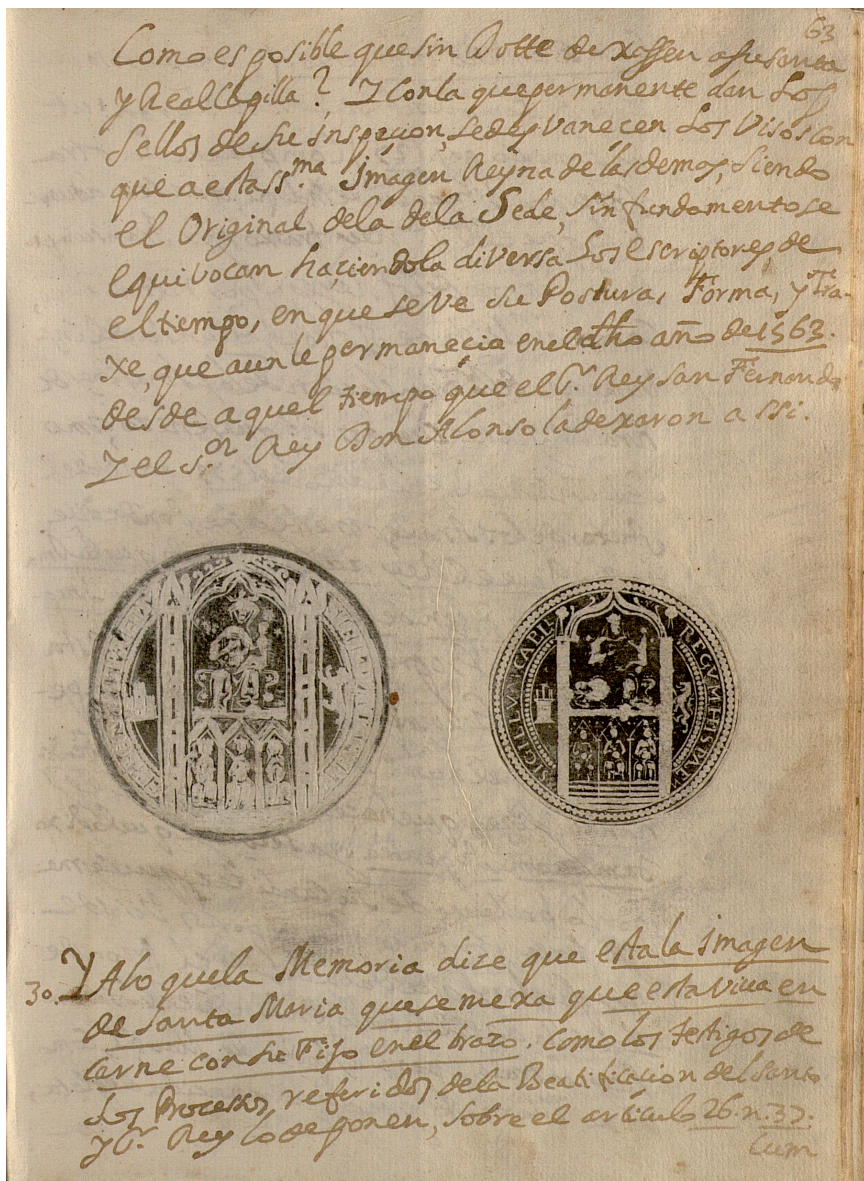 63
Como es posible que sin Dotte dexassen a su santa
y Real Capilla? Y con la que permanente dan Los
sellos de su inspecion, se desvanecen Los Visos con
que a esta ss.ma Imagen Reyna de las demas, siendo
el Original dela dela Sede, sin fundamento se
equivocan haçiendola diversa Los Escriptores, de
el tiempo, en que se ve su Postura, Forma, y Tra-
xe, que aun le permanecia en el dho año de 1563.
desde aquel tiempo que el Sr. Rey san Fernando
Y el s.or Rey Don Alonso la dexaron assi.
SIGILLVM CAPIL REGVM HISPALE
30. Y A lo que la Memoria dize que esta la imagen
de Santa Maria que semexa que esta viva en
carne con su Fijo en el brazo. Como los testigos de
Los Processos referidos de la Beatificacion del santo
y Sr. Rey lo deponen, sobre el articulo 26. n. 37.
Cum